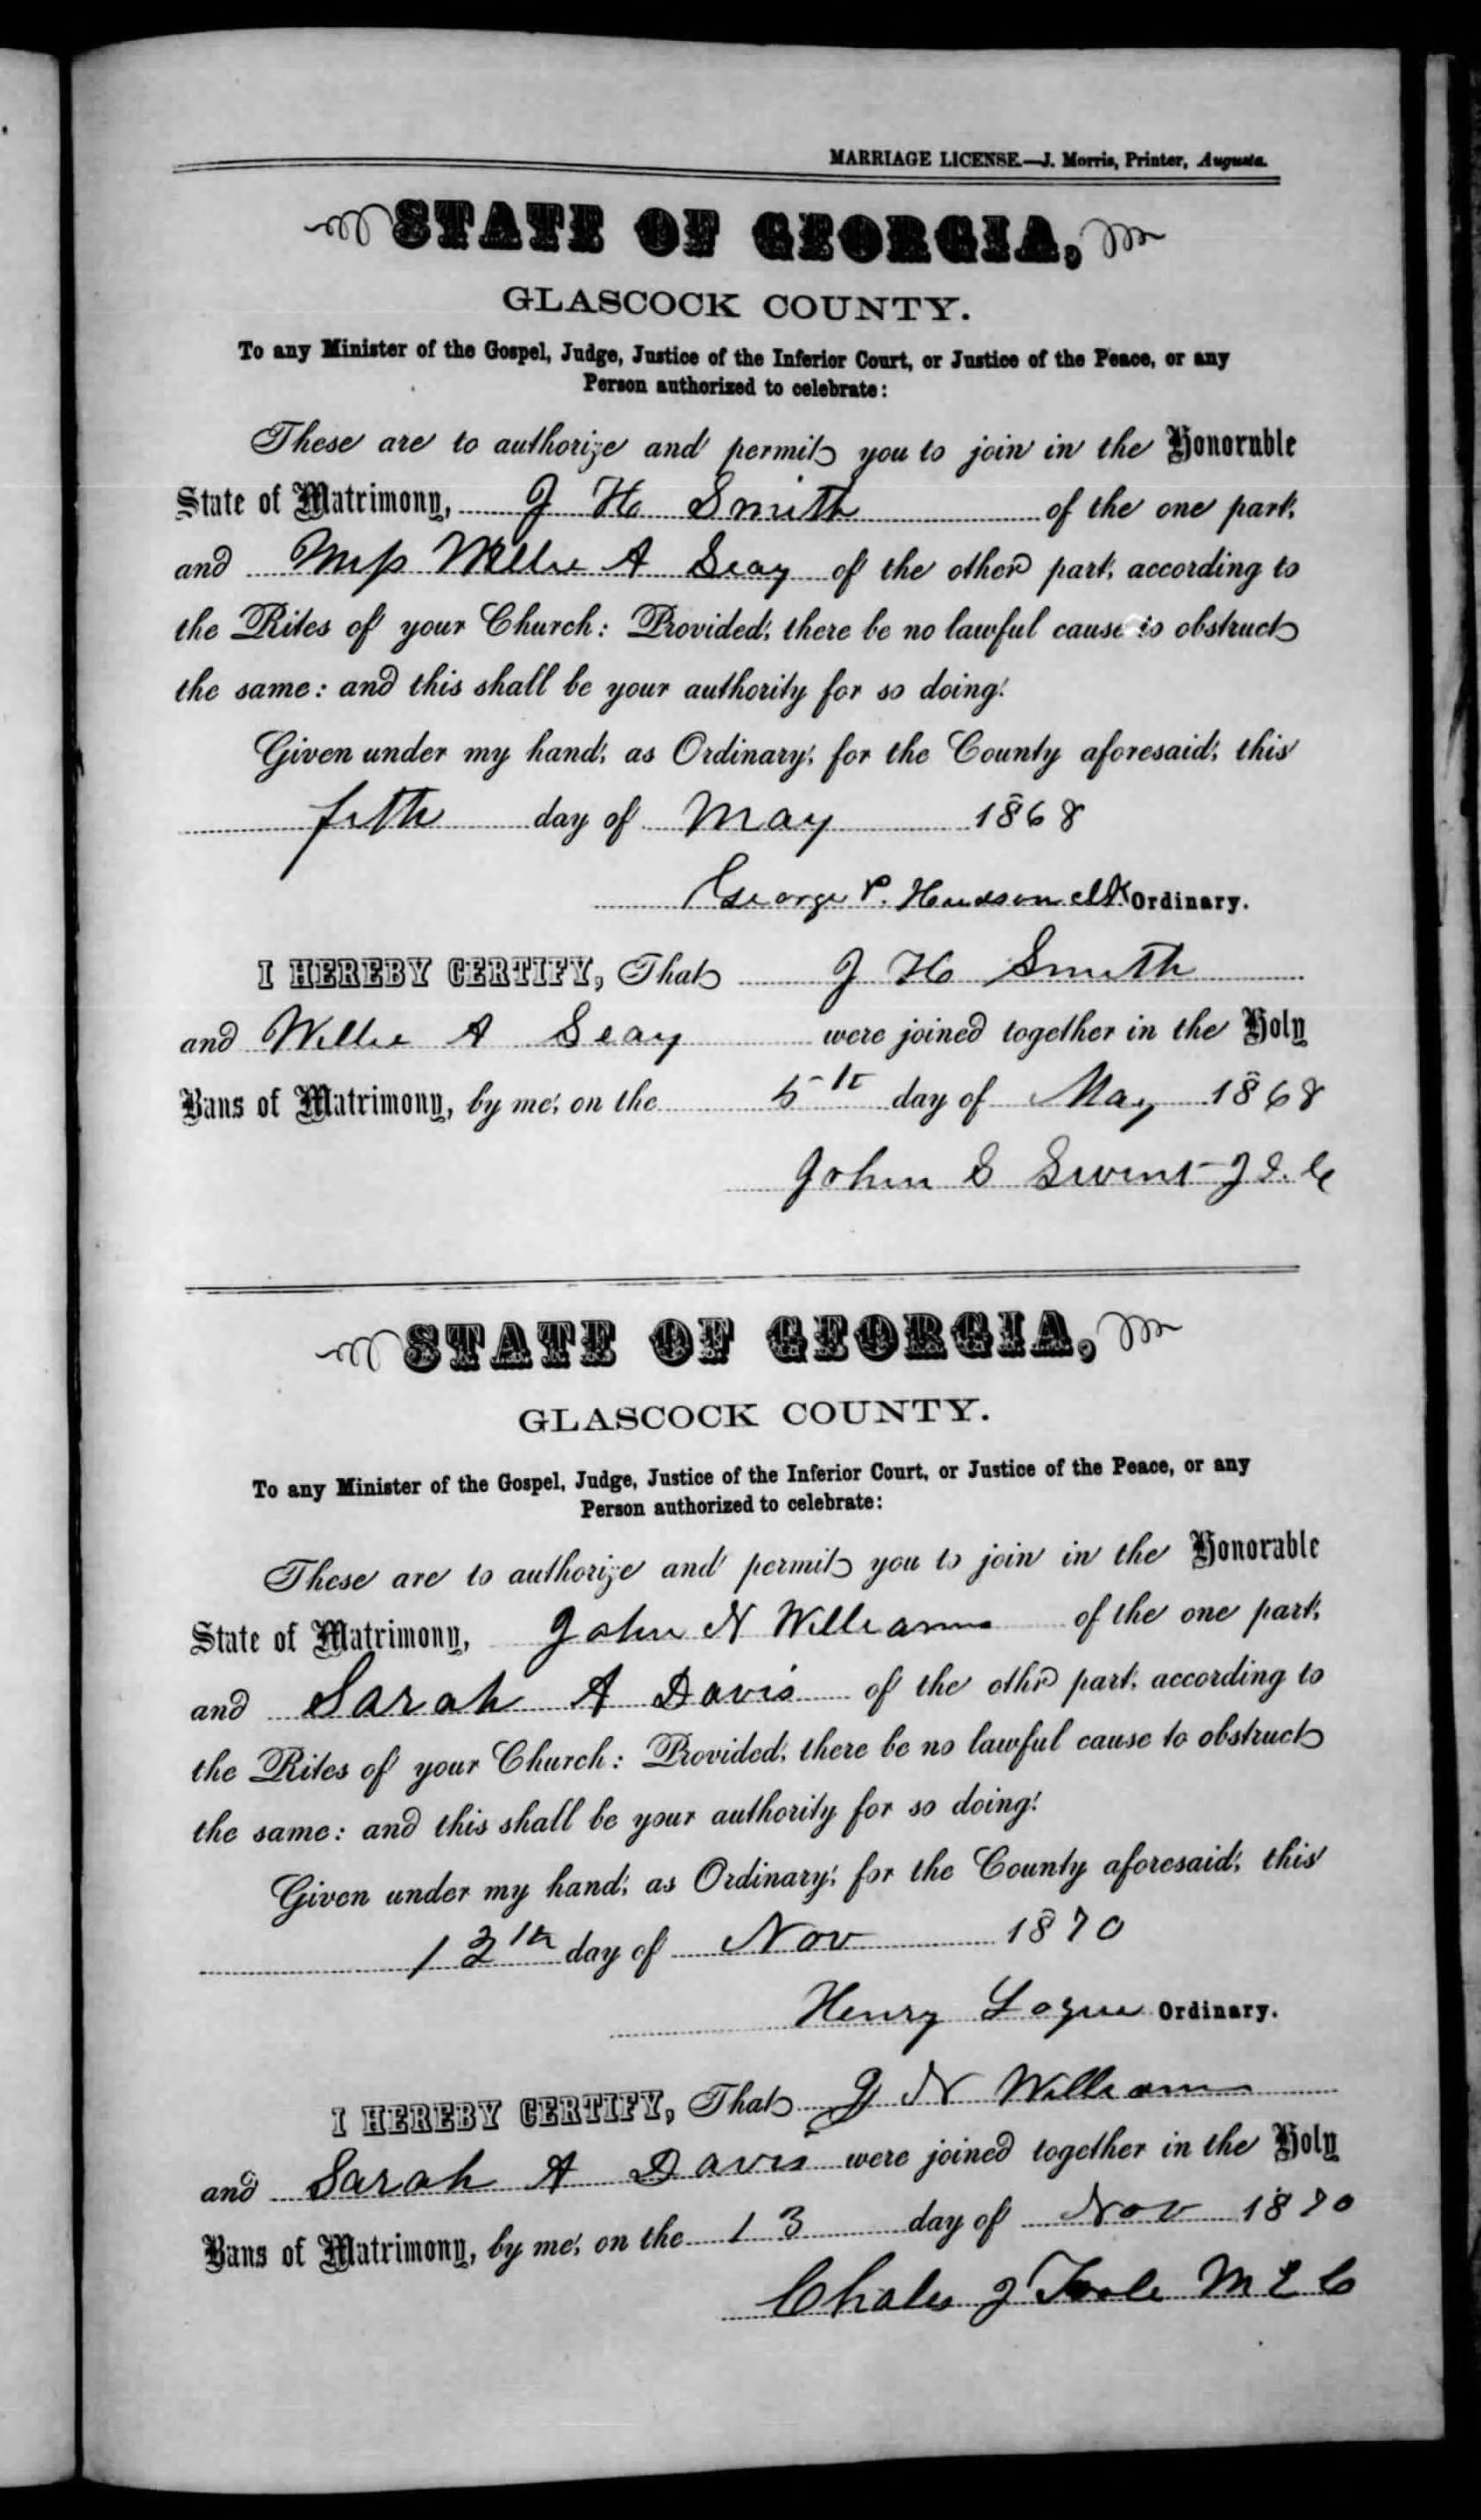 MARRIAGE LICENSE.—J. Morris, Printer, Augusta.
STATE OF GEORGIA,
GLASCOCK COUNTY.
To any Minister of the Gospel, Judge, Justice of the Inferior Court, or Justice of the Peace, or any
Person authorized to celebrate:
These are to authorize and permit you to join in the Honorable
State of Matrimony, J H Smith of the one part,
and Miss Willie A Seay of the other part, according to
the Rites of your Church: Provided, there be no lawful cause to obstruct
the same: and this shall be your authority for so doing.
Given under my hand, as Ordinary, for the County aforesaid, this
fifth day of May 1868
George P. Hudson clk Ordinary.
I HEREBY CERTIFY, That J H Smith
and Willie A Seay were joined together in the Holy
Bans of Matrimony, by me, on the 5th day of May 1868
John S Swint J I. C
STATE OF GEORGIA,
GLASCOCK COUNTY.
To any Minister of the Gospel, Judge, Justice of the Inferior Court, or Justice of the Peace, or any
Person authorized to celebrate:
These are to authorize and permit you to join in the Honorable
State of Matrimony, John N Williams of the one part,
and Sarah A Davis of the other part, according to
the Rites of your Church: Provided, there be no lawful cause to obstruct
the same: and this shall be your authority for so doing.
Given under my hand, as Ordinary, for the County aforesaid, this
12th day of Nov 1870
Henry Logue Ordinary.
I HEREBY CERTIFY, That J N Williams
and Sarah A Davis were joined together in the Holy
Bans of Matrimony, by me, on the 13 day of Nov 1870
Chales J Toole M E C